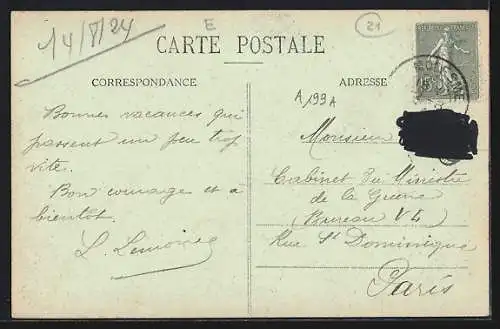 14/8/24
E
21
CARTE POSTALE
CORRESPONDANCE
ADRESSE
A 199A
Bonnes vacances qui
passent un peu trop
vite.
Bon courage et à
bientôt.
L. Lemoine
Monsieur
Cabinet du Ministre
de la Guerre
(Bureau VL)
Rue St Dominique
Paris